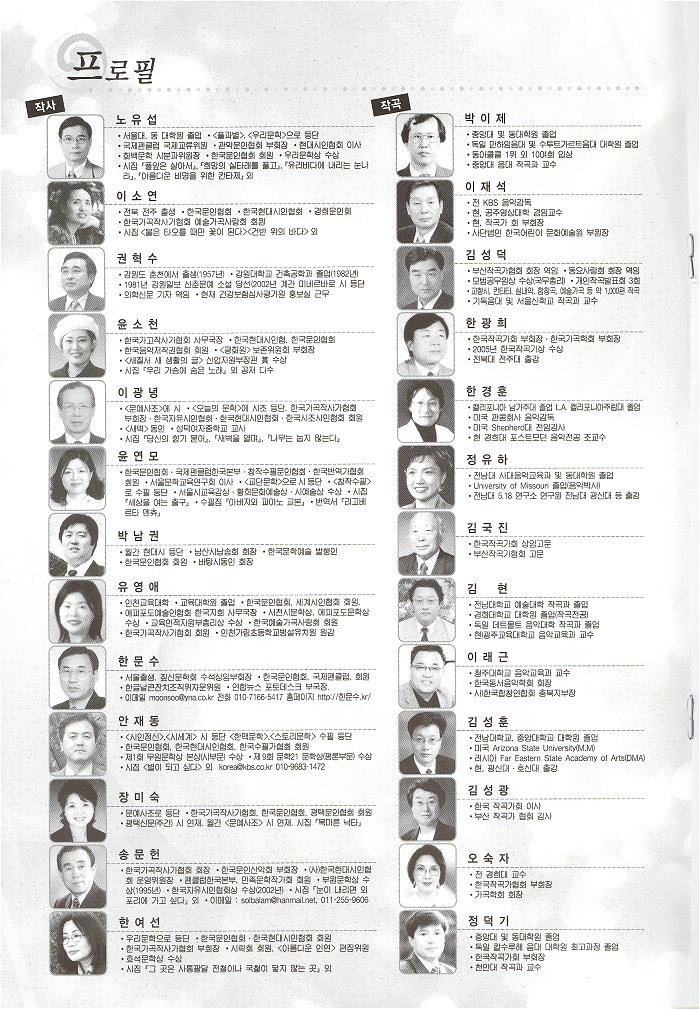 프로필
작사
노유섭
• 서울대, 동 대학원 졸업 • <풀과별>, <우리문학>으로 등단
• 국제펜클럽 국제교류위원 • 관악문인협회 부회장 • 현대시인협회 이사
• 한국문인협회 회원 • 우리문학상 수상
• 시집 『풀잎은 살아서』, 『희망의 실타래를 풀고』, 『유리바다에 내리는 눈나
라』, 『아름다운 비명을 위한 칸타제』 외
이소연
• 전북 전주 출생 • 한국문인협회 • 한국현대시인협회 • 경희문인회
• 한국가곡작사가협회 예술가곡사랑회 회원
• 시집 <불은 타오를 때만 꽃이 된다><건반 위의 바다> 외
권혁수
• 강원도 춘천에서 출생(1957년) • 강원대학교 건축공학과 졸업(1982년)
• 1981년 강원일보 신춘문예 소설 당선(2002년 계간 미네르바로 시 등단
• 의학신문 기자 역임 • 현재 건강보험심사평가원 홍보실 근무
윤소천
• 한국가고작사가협회 사무국장 • 한국현대시인협, 한국문인협회
• 한국음악저작권협회 회원 • <평화원> 보존위원회 부회장
• <새질서 새 생활의 글> 산업자원부장관 賞 수상
• 시집 『우리 가슴에 숨은 노래』 외 공저 다수
이광녕
• <문예사조>에 시 • <오늘의 문학>에 시조 등단. 한국가곡작사가협회
부회장 • 한국자유시인협회 • 한국현대시인협회 • 한국시조시인협회 회원
• <새벽> 동인 • 성덕여자중학교 교사
• 시집 『당신의 향기 묻어』, 『새벽을 열며』, 『나무는 눕지 않는다』
윤연모
• 한국문인협회 • 국제펜클럽한국본부 • 창작수필문인협회 • 한국번역가협회
회원 • 서울문학교육연구회 이사 • <교단문학>으로 시 등단 • <창작수필>
로 수필 등단 • 서울시교육감상 • 황희문화예술상 • 시예술상 수상 • 시집
『세상을 여는 출구』 • 수필집 『아버지와 피아노 교본』 • 번역서 『리고베
르타 멘츄』
박남권
• 월간 현대시 등단 • 남산시낭송회 회장 • 한국문학예술 발행인
• 한국문인협회 회원 • 바탕시동인 회장
유영애
• 인천교육대학 • 교육대학원 졸업 • 한국문인협회, 세계시인협회 회원,
에피포도예술인협회 한국지회 사무국장 • 서전시문학상, 에피포도문학상
수상 • 교육인적자원부총리상 수상 • 한국예술가곡사랑회 회원
• 한국가곡작사가협회 회원 • 인천가림초등학교병설유치원 원감
한문수
• 서울출생, 짚신문학회 수석상임부회장 • 한국문인협회, 국제펜클럽, 회원
• 한글날큰잔치조직위자문위원 • 연합뉴스 포토데스크 부국장.
• 이메일 moonsoo@yna.co.kr 전화 010-7166-5417 홈페이지 http://한문수.kr/
안재동
• <시인정신>, <시세계> 시 등단 <한맥문학>, <스토리문학> 수필 등단
• 한국문인협회, 한국현대시인협회, 한국수필가협회 회원
• 제1회 무원문학상 본상(시부문) 수상 • 제9회 문학21 문학상(평론부문) 수상
• 시집 <별이 되고 싶다> 외 korea@kbs.co.kr 010-9683-1472
장미숙
• 문예사조로 등단 • 한국가곡작사가협회, 한국문인협회, 평택문인협회 회원
• 평택신문(주간) 시 연재, 월간 <문예사조> 시 연재, 시집 『목마른 낙타』
송문헌
• 한국가곡작사가협회 회장 • 한국문인산악회 부회장 • (사)한국현대시인협
회 운영위원장 • 펜클럽한국본부, 민족문학작가회 회원 • 부원문학상 수
상(1995년) • 한국자유시인협회상 수상(2002년) • 시집 『눈이 내리면 외
포리에 가고 싶다』 외 • 이메일 : solbalam@hanmail.net, 011-255-9606
한여선
• 우리문학으로 등단 • 한국문인협회 • 한국현대시인협회 회원
• 한국가곡작사가협회 부회장 • 시락회 회원, <아름다운 인연> 편집위원
• 효석문학상 수상
• 시집 『그 곳은 사통팔달 전철이나 국철이 닿지 않는 곳』 외
작곡
박이제
• 중앙대 및 동대학원 졸업
• 독일 만하임음대 및 수투트가르트음대 대학원 졸업
• 동아콩쿨 1위 외 100여회 입상
• 중앙대 음대 작곡과 교수
이재석
• 전 KBS 음악감독
• 현, 공주영상대학 겸임교수
• 현, 작곡가 회 부회장
• 사단법인 한국어린이 문화예술원 부원장
김성덕
• 부산작곡가협회 회장 역임 • 동요사랑회 회장 역임
• 모범공무원상 수상(국무총리) • 개인작곡발표회 3회
• 교향시, 칸타타, 실내악, 합창곡, 예술가곡 등 약 1,000편 작곡
• 기독음대 및 서울신학교 작곡과 교수
한광희
• 한국작곡가회 부회장 • 한국가곡학회 부회장
• 2005년 한국작곡가상 수상
• 전북대 전주대 출강
한경훈
• 캘리포니아 남가주대 졸업 L.A. 캘리포니아주립대 졸업
• 미국 관콤회사 음악감독
• 미국 Shepherd대 전임강사
• 현 경희대 포스트모던 음악전공 조교수
정유하
• 전남대 사대음악교육과 및 동대학원 졸업
• University of Missouri 졸업(음악박사)
• 전남대 5.18 연구소 연구원 전남대 광신대 등 출강
김국진
• 한국작곡가회 상임고문
• 부산작곡가협회 고문
김 현
• 전남대학교 예술대학 작곡과 졸업
• 경희대학교 대학원 졸업(작곡전공)
• 독일 데트몰트 음악대학 작곡과 졸업
• 현)광주교육대학교 음악교육과 교수
이래근
• 청주대학교 음악교육과 교수
• 한국동서음악학회 회장
• 사)한국합창연합회 충북지부장
김성훈
• 전남대학교, 중앙대학교 대학원 졸업
• 미국 Arizona State University(M.M)
• 러시아 Far Eastern State Academy of Arts(DMA)
• 현, 광신대 • 호신대 출강
김성광
• 한국 작곡가회 이사
• 부산 작곡가 협회 감사
오숙자
• 전 경희대 교수
• 한국작곡가협회 부회장
• 가곡학회 회장
정덕기
• 중앙대 및 동대학원 졸업
• 독일 칼수루헤 음대 대학원 최고과정 졸업
• 한국작곡가회 부회장
• 천안대 작곡과 교수